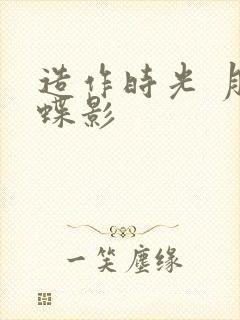 造作時光
蝶影
一笑塵缘